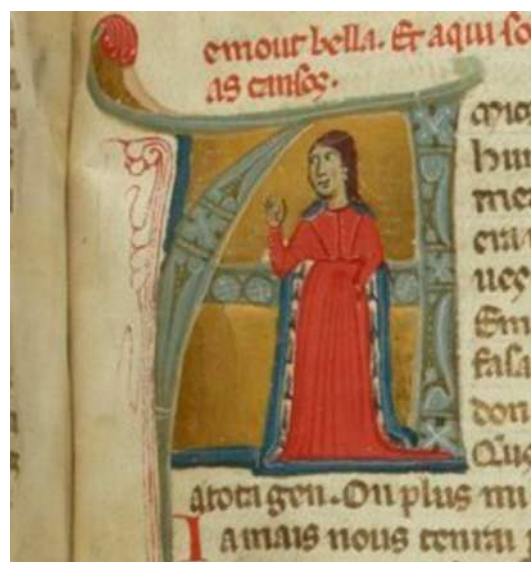 emout bella. Et aqui so
as cansos.
A mic
hum
mer
era
ueç
Em
fasa
don
Que
atota gen. On plus mi
Iamais nous tenrai p